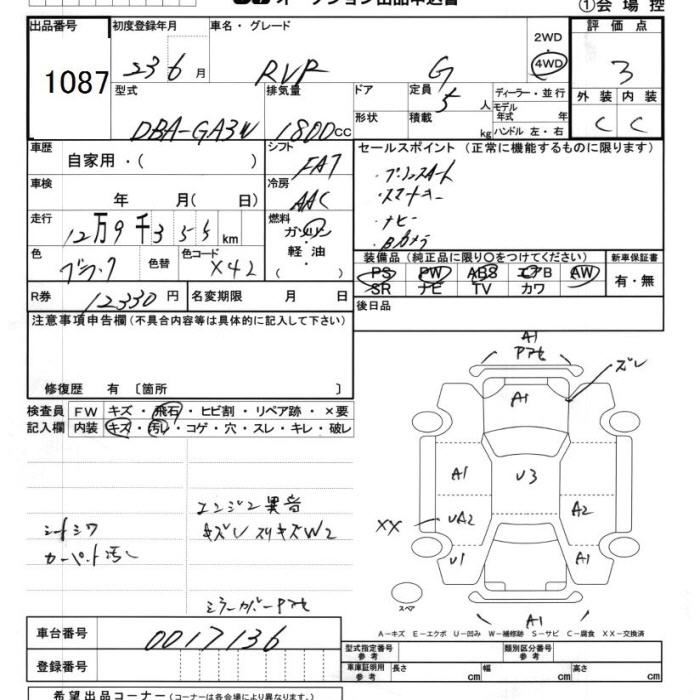 オークション出品申込書
①会場控
出品番号 初度登録年月 車名・グレード 評価点
1087 23 6月 RVR G 2WD 4WD 3
型式 排気量 ドア 定員 5人 ディーラー・並行 外装 内装
DBA-GA3W 1800cc 形状 積載 kg モデル年式 年 ハンドル 左・右 C C
車歴 自家用・( ) シフト FAT セールスポイント (正常に機能するものに限ります)
車検 年 月( 日) 冷房 AAC
・プッシュスタート
・スマートキー
・ナビ
・Bカメラ
走行 12万9千355km 燃料 ガソリン 軽油 ( )
色 ブラック 色替 色コード X42
装備品 (純正品に限り○をつけてください) 新車保証書
PS PW ABS エアB AW 有・無
SR ナビ TV カワ
R券 12330円 名変期限 月 日 後日品
注意事項申告欄 (不具合内容等は具体的に記入して下さい)
修復歴 有 〔箇所 〕
検査員 FW キズ・飛石・ヒビ割・リペア跡・×要
記入欄 内装 キズ・汚レ・コゲ・穴・スレ・キレ・破レ
シートシワ
カーペット汚レ
エンジン異音
キズU スリキズW2
ミラーカバーPアセ
A1
Pアセ
ズレ
A1
A1 U3
XX UA2 A2
U1 A1
スペア
A1
A-キズ E-エクボ U-凹み W-補修跡 S-サビ C-腐食 XX-交換済
車台番号 0017136
登録番号
型式指定番号 参考 類別区分番号 参考
車庫証明用 参考 長さ cm 幅 cm 高さ cm
希望出品コーナー (コーナーは各会場により異なります。)